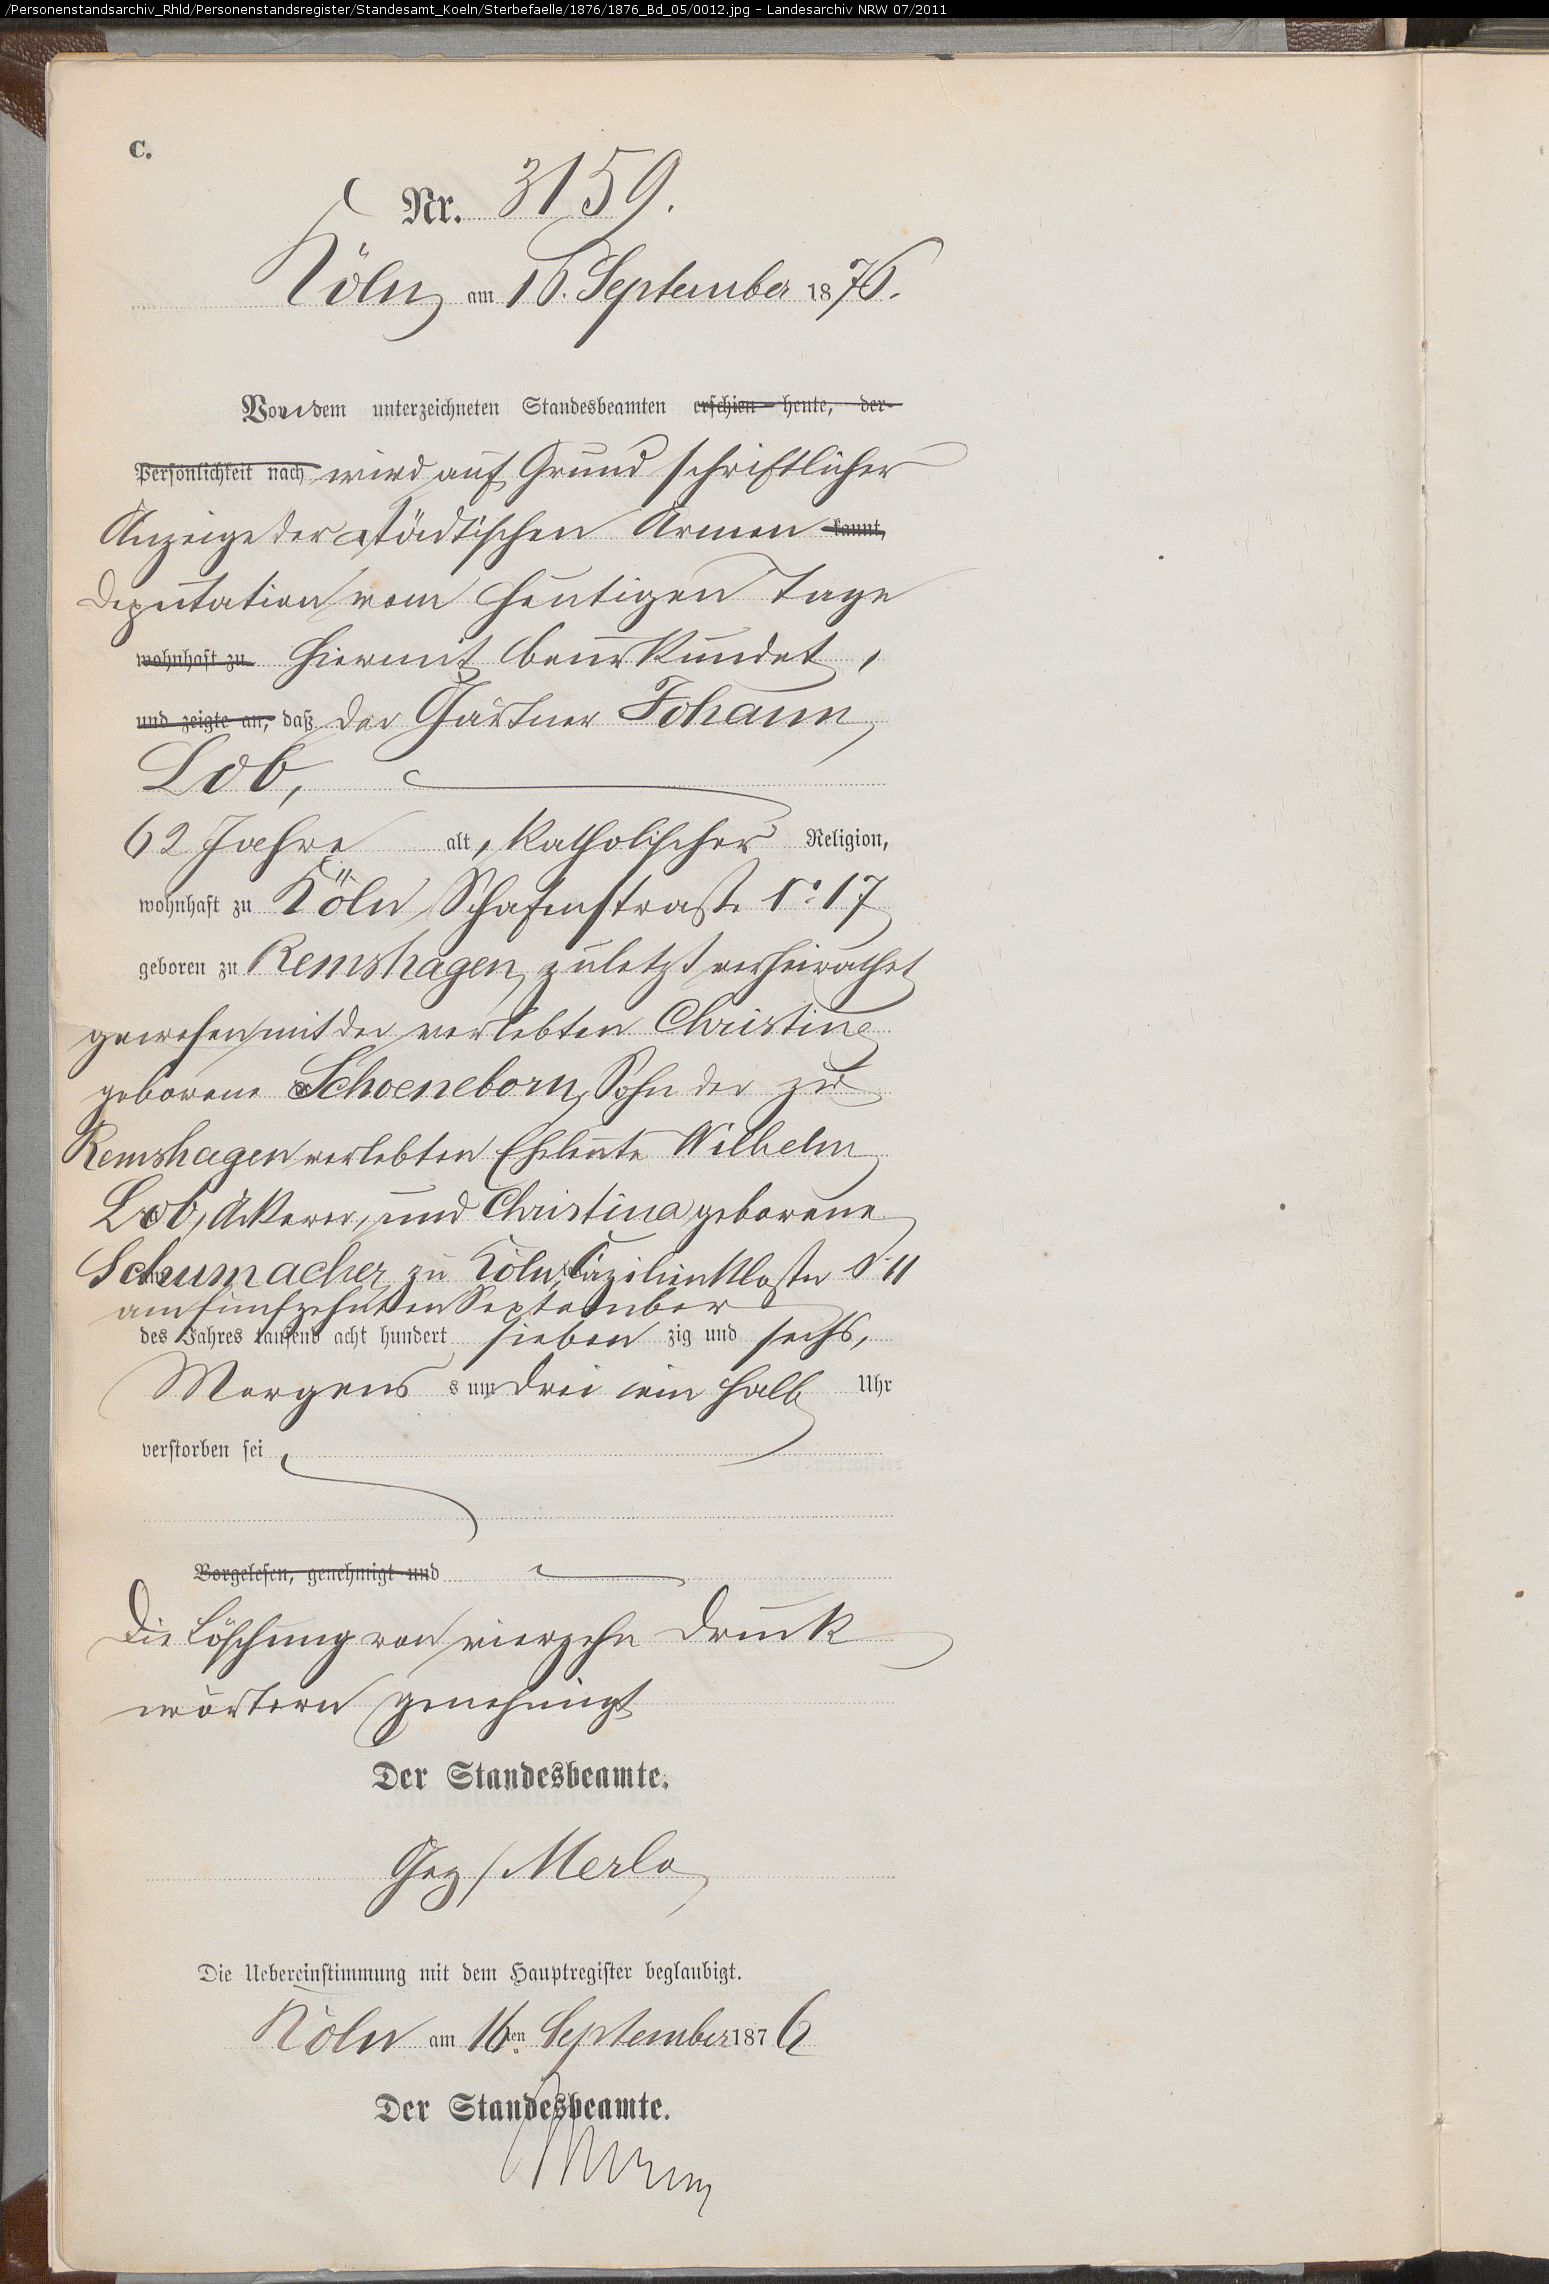 /Personenstandsarchiv_Rhld/Personenstandsregister/Standesamt_Koeln/Sterbefaelle/1876/1876_Bd_05/0012.jpg - Landesarchiv NRW 07/2011
C.
Nr. 3159.
Köln am 16. September 1876.
Von dem unterzeichneten Standesbeamten erschien heute, der
Persönlichkeit nach wird auf Grund schriftlicher
Anzeige der städtischen Armen kannt,
deputation vom heutigen Tage
wohnhaft zu hiermit beurkundet,
und zeigte an, daß der Gärtner Johann
Lob,
62 Jahre alt, katholischer Religion,
wohnhaft zu Köln, Schafenstraße No 17
geboren zu Remshagen, zuletzt verheirathet
gewesen mit der verlebten Christine
geborene Schoeneborn, Sohn der zu
Remshagen verlebten Eheleute Wilhelm
Lob, Ackerer, und Christina geborene
Schumacher zu Köln, Cäzilienkloster No 11
am fünfzehnten September
des Jahres tausend acht hundert sieben zig und sechs,
Morgens s um drei ein halb Uhr
verstorben sei
Vorgelesen, genehmigt und
Die Löschung von vierzehn Druck
wörtern genehmigt
Der Standesbeamte.
Gez/ Merlo
Die Uebereinstimmung mit dem Hauptregister beglaubigt.
Köln am 16ten September 1876
Der Standesbeamte.